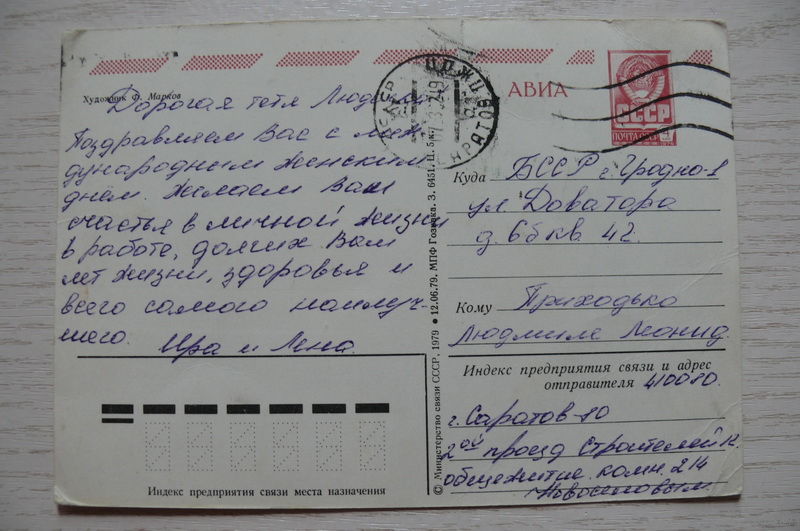 Художник Ф. Марков
Дорогая тётя Людмила
Поздравляем Вас с меж
дународным женским
днём. Желаем Вам
счастья в личной жизни
в работе, долгих Вам
лет жизни, здоровья и
всего самого наилуч-
шего.
Ира и Лена.
АВИА
СССР
ПОЧТА
Куда БССР г. Гродно-1
ул Доватора
д. 6б кв. 42.
Кому Приходько
Людмиле Леонид.
Индекс предприятия связи и адрес
отправителя 410080.
г. Саратов-80
2ой проезд Строителей
общежитие. комн. 214
Новоселовым
© Министерство связи СССР, 1979 ● 12.06.79. МПФ Гознака. З. 6451. Ц. 5 к.
Индекс предприятия связи места назначения